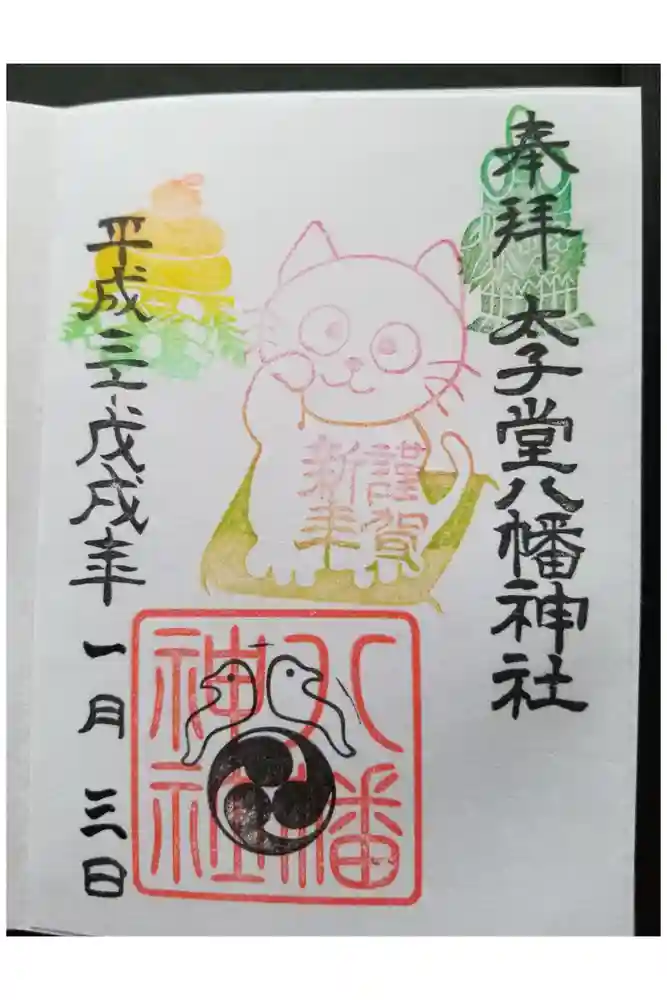 奉拝 太子堂八幡神社
謹賀
新年
八幡
神社
平成三十戊戌年 一月 三日